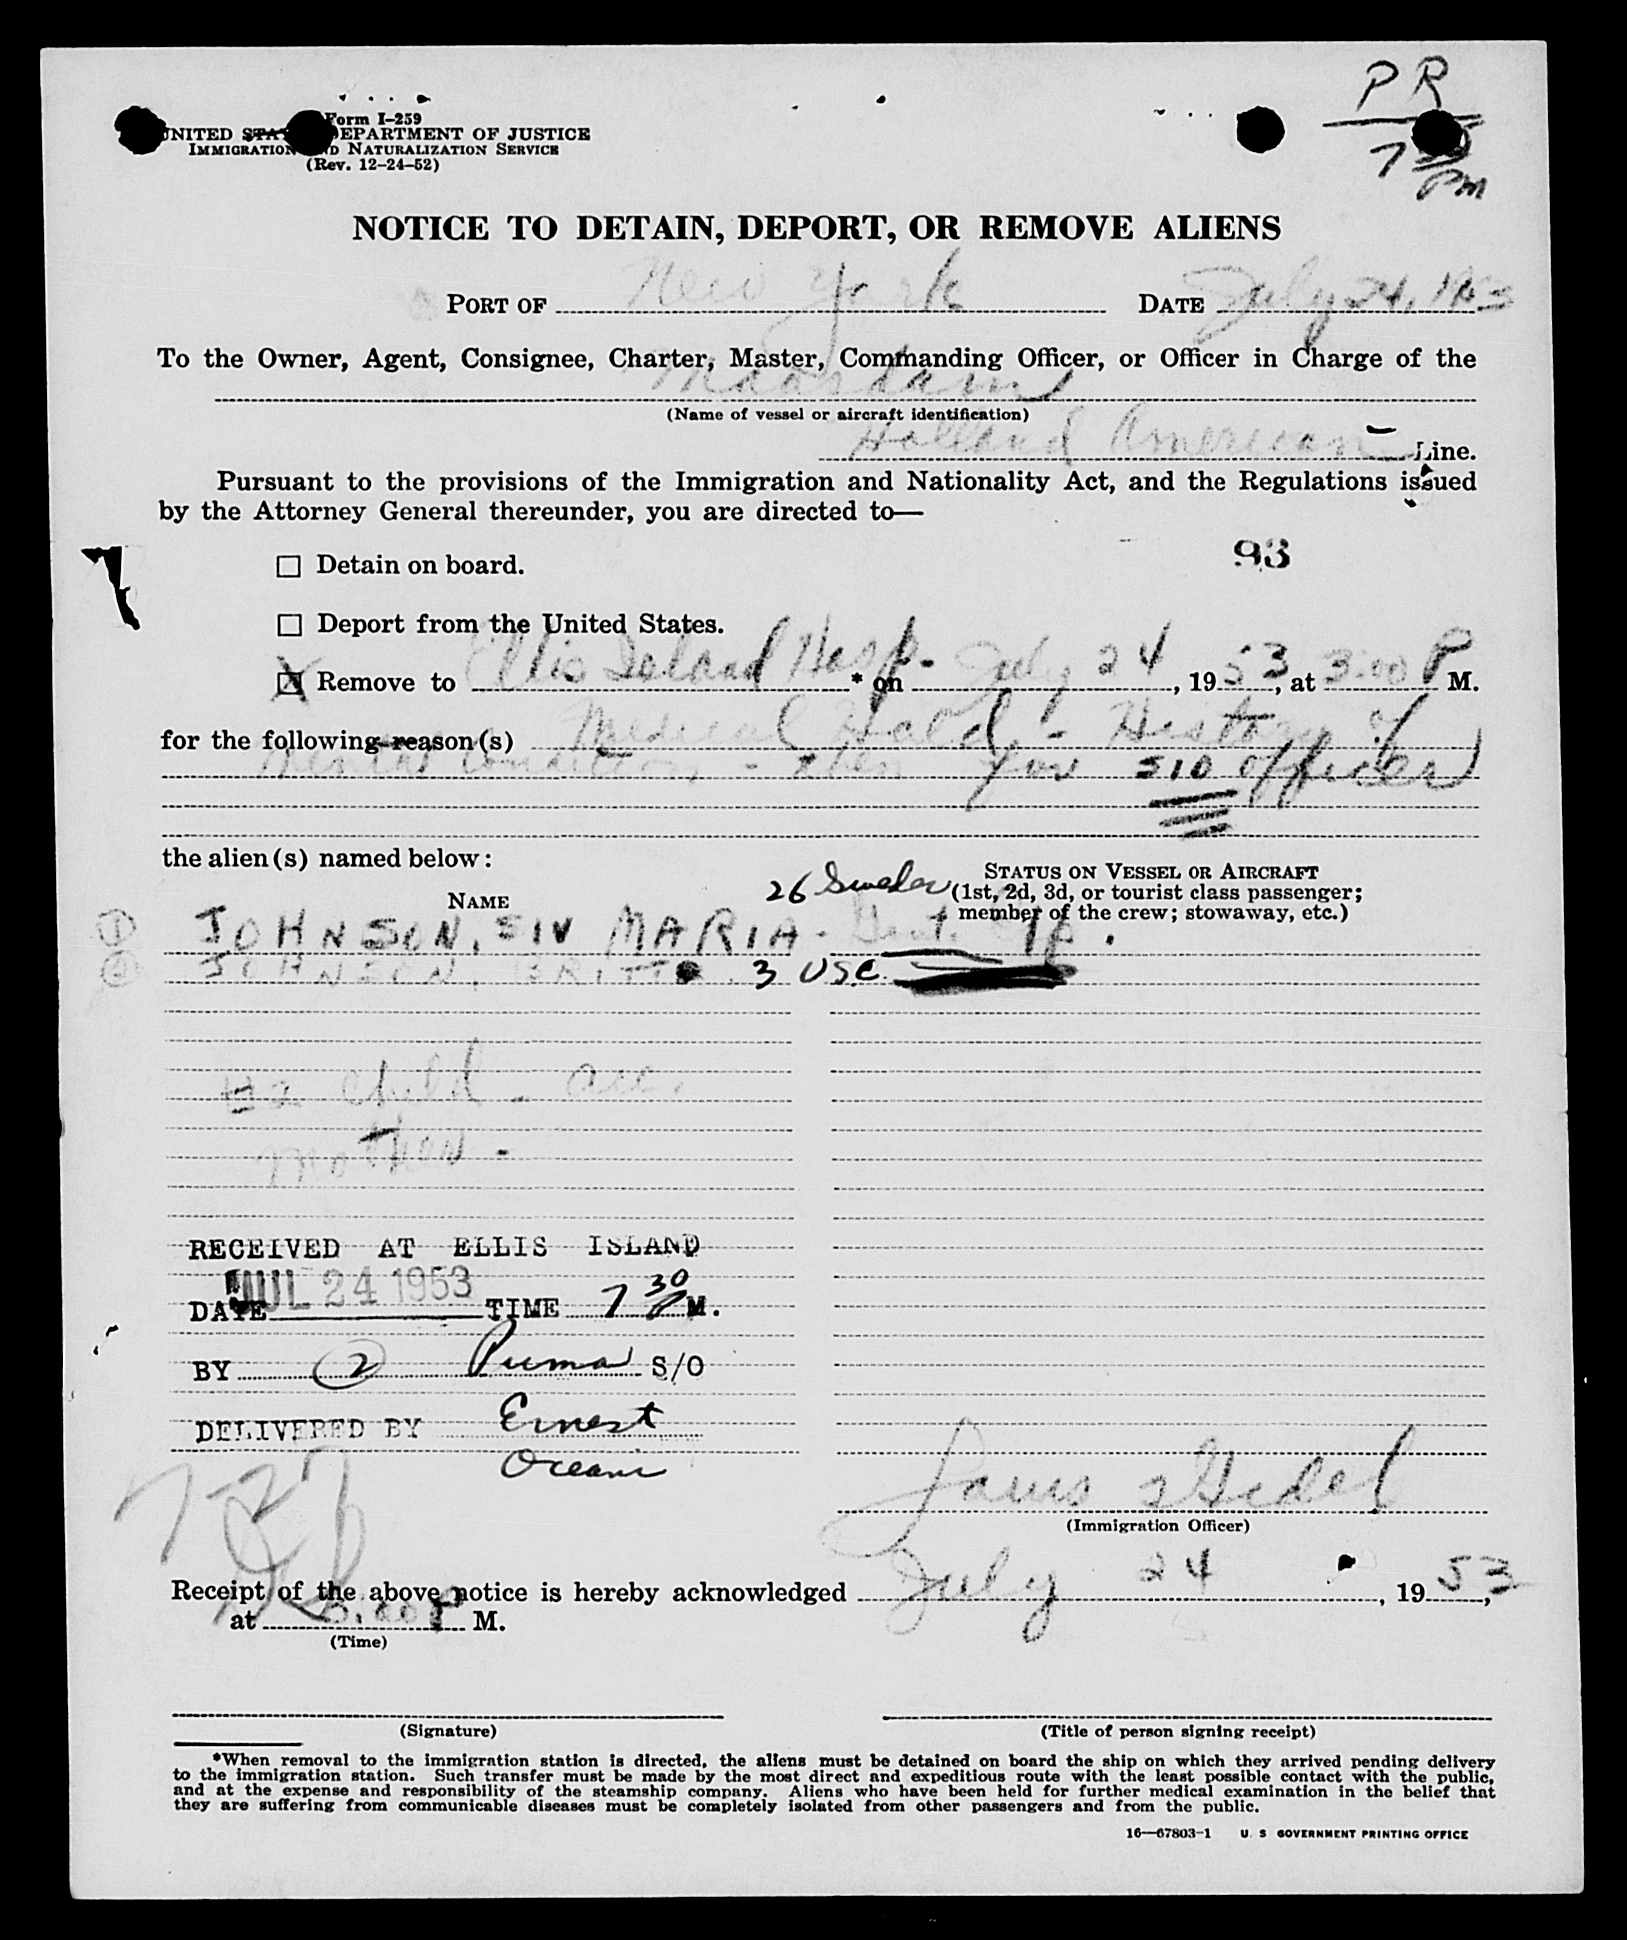 PR
7 30
PM
Form I-259
UNITED STATES DEPARTMENT OF JUSTICE
IMMIGRATION AND NATURALIZATION SERVICE
(Rev. 12-24-52)
NOTICE TO DETAIN, DEPORT, OR REMOVE ALIENS
PORT OF New York DATE July 24, 1953
To the Owner, Agent, Consignee, Charter, Master, Commanding Officer, or Officer in Charge of the
Maasdam
(Name of vessel or aircraft identification)
Holland American Line.
Pursuant to the provisions of the Immigration and Nationality Act, and the Regulations issued
by the Attorney General thereunder, you are directed to—
93
☐ Detain on board.
☐ Deport from the United States.
☒ Remove to Ellis Island Hosp. * on July 24, 1953, at 3:00 P M.
for the following reason(s) Medical Hold - History of
Mental Condition - then for SIO officer
the alien(s) named below:
NAME
26 Sweden
STATUS ON VESSEL OR AIRCRAFT
(1st, 2d, 3d, or tourist class passenger;
member of the crew; stowaway, etc.)
① JOHNSON, SIV MARIA -
② JOHNSON, BRITT 3 USC
#2 Child - acc.
Mother -
RECEIVED AT ELLIS ISLAND
DATE JUL 24 1953 TIME 7 30 P M.
BY ② Puma S/O
DELIVERED BY Ernest
Oceanic
7-27
Louis Heidel
(Immigration Officer)
Receipt of the above notice is hereby acknowledged July 24, 1953,
at 3:00 P M.
(Time)
(Signature) (Title of person signing receipt)
*When removal to the immigration station is directed, the aliens must be detained on board the ship on which they arrived pending delivery
to the immigration station. Such transfer must be made by the most direct and expeditious route with the least possible contact with the public,
and at the expense and responsibility of the steamship company. Aliens who have been held for further medical examination in the belief that
they are suffering from communicable diseases must be completely isolated from other passengers and from the public.
16—67803-1 U. S. GOVERNMENT PRINTING OFFICE